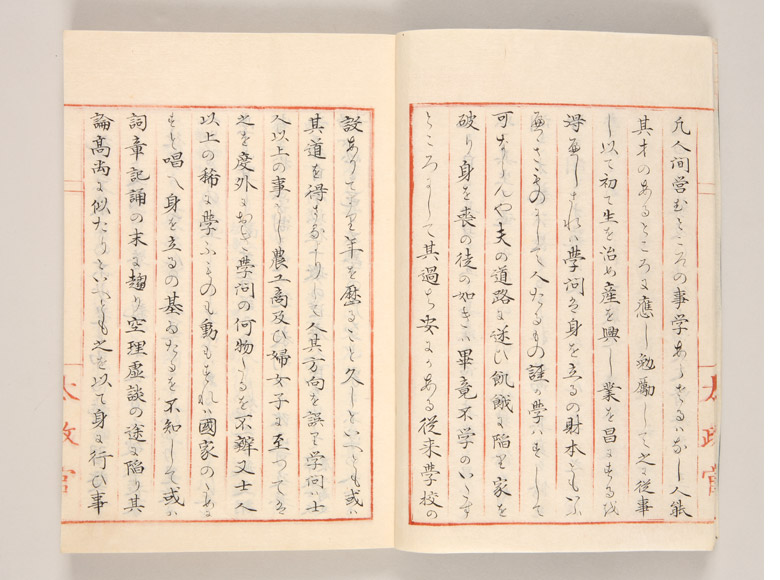 凡人間営むところの事学あらさるハなし人能
其才のあるところに應し勉勵して之に從事
し以て初て生を治め産を興し業を昌にするを
得へしされハ學問ハ身を立るの財本ともいふ
へきものにして人たるもの誰か學ハすして
可ならんや夫の道路に迷ひ飢餓に陥り家を
破り身を喪の徒の如きハ畢竟不学のいたす
ところにして其過ち安にかある從来學校の
設ありてより年を歴ること久しといへとも或ハ
其道を得さるよりして人其方向を誤り学問ハ士
人以上の事とし農工商及ひ婦女子に至つてハ
之を度外におき學問の何物たるを不辨又士人
以上の稀に學ふものも動もすれハ國家のために
すと唱へ身を立るの基たるを不知して或ハ
詞章記誦の末に趨り空理虚談の途に陥り其
論高尚に似たりといへとも之を以て身に行ひ事
太政官
太政官